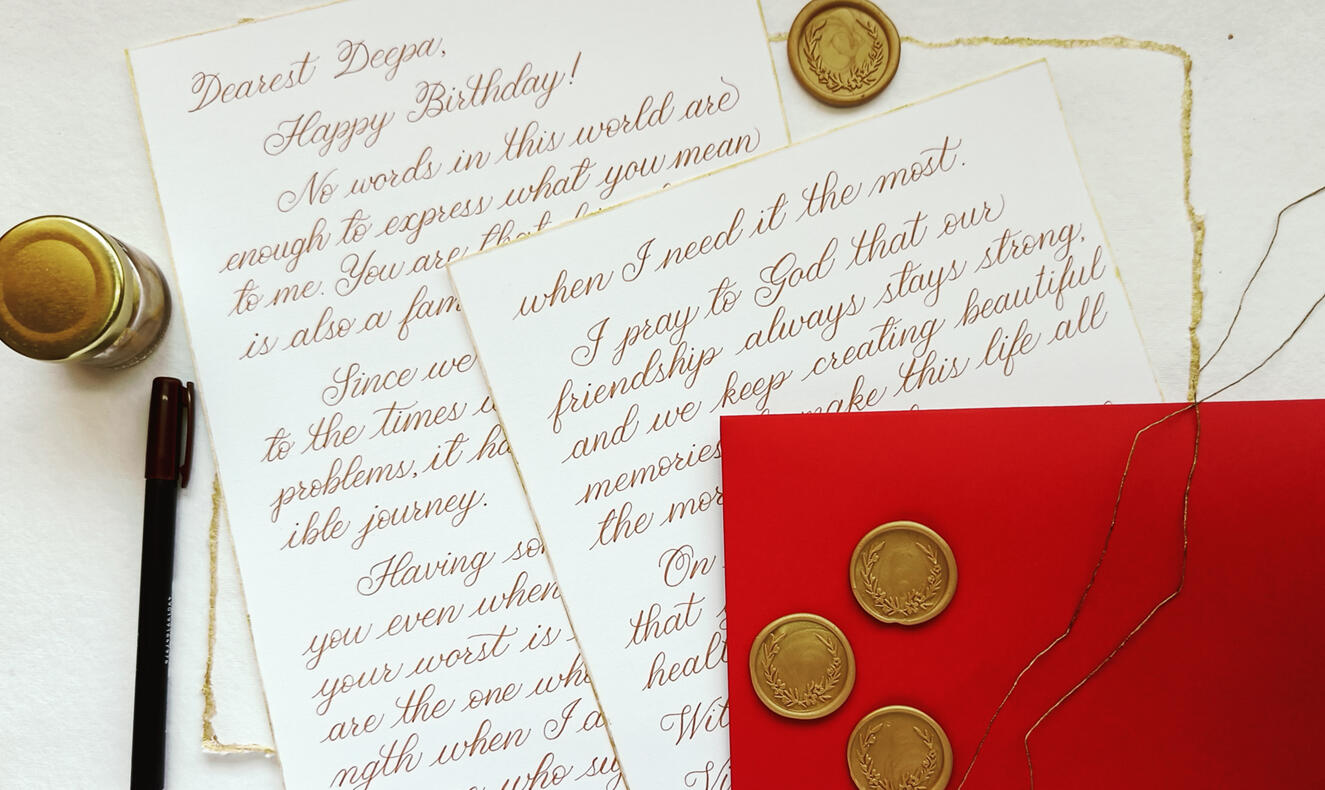 Dearest Deepa,
Happy Birthday!
No words in this world are
enough to express what you mean
to me. You are that
is also a fam
Since we
to the times
problems, it ha
ible journey.
Having so
you even when
your worst is
are the one who
ngth when I a
who su
when I need it the most.
I pray to God that our
friendship always stays strong,
and we keep creating beautiful
memories make this life all
the mor
On
that
healt
Wit